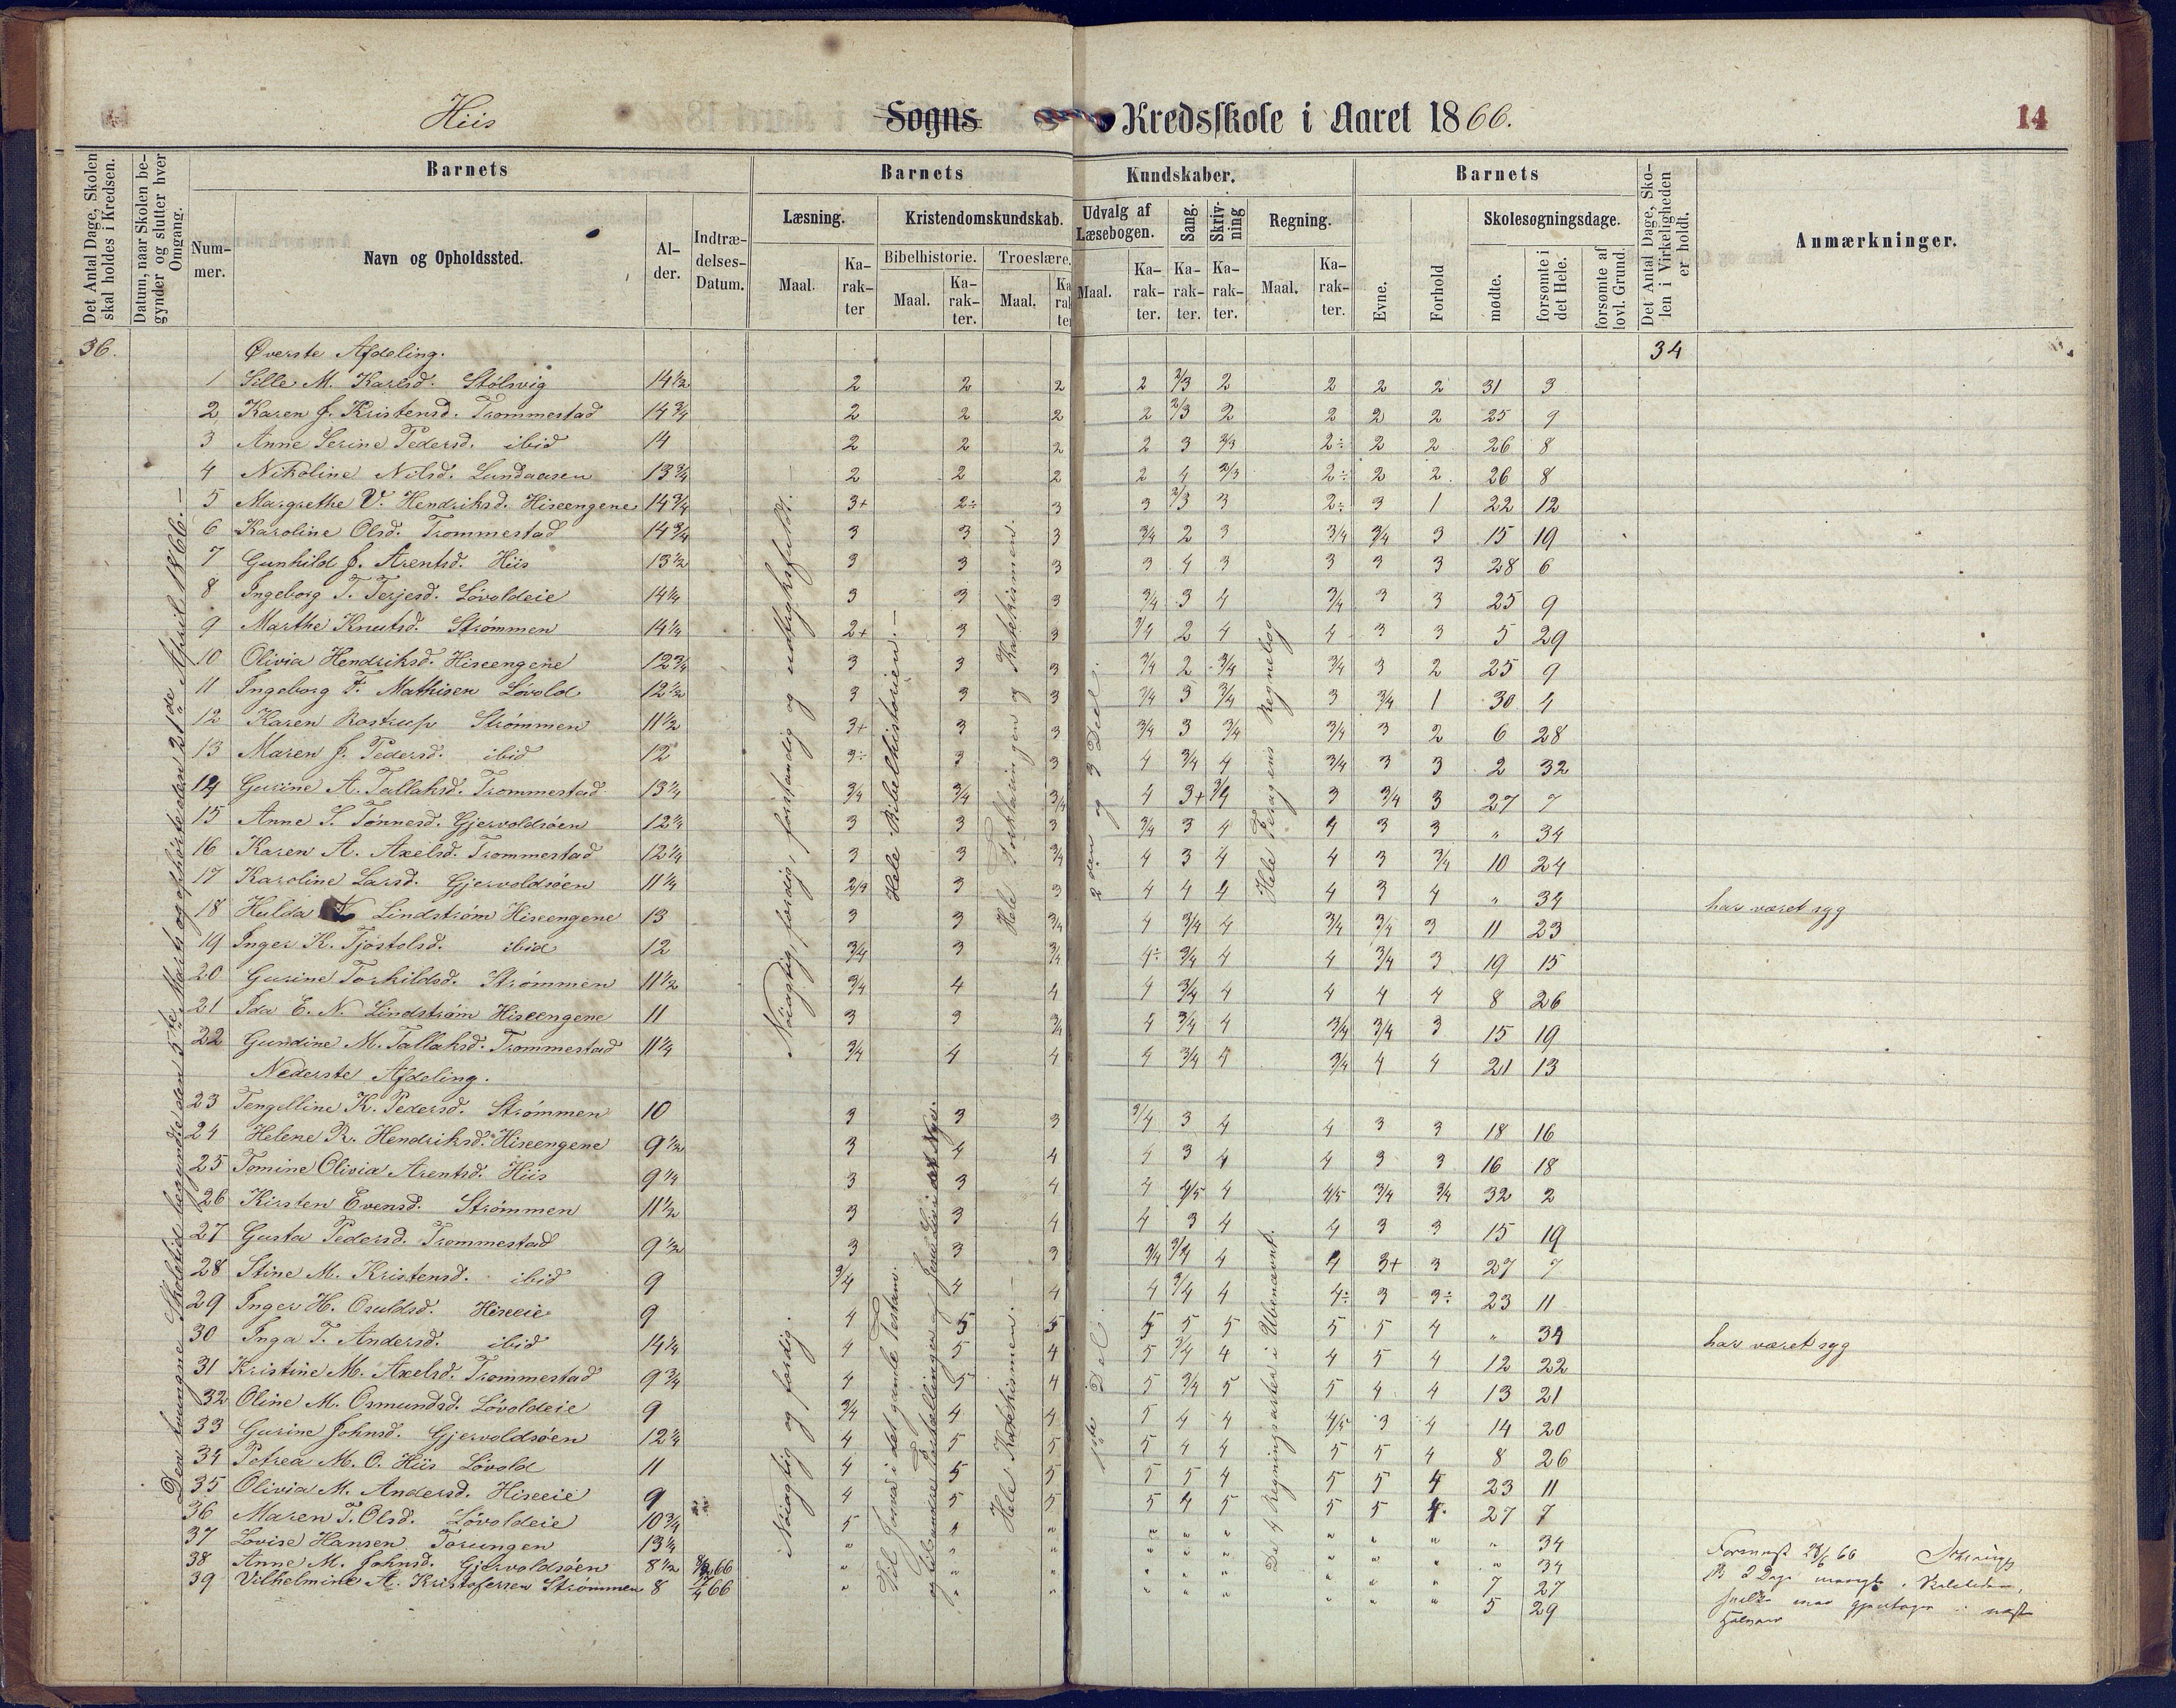 Hiis Sogns Kredsskole i Aaret 1866. 14
Det Antal Dage, Skolen skal holdes i Kredsen.
Datum, naar Skolen begynder og slutter hver Omgang.
Barnets
Nummer.
Navn og Opholdssted.
Alder.
Indtrædelses-Datum.
Barnets Kundskaber.
Læsning.
Maal. Karakter
Kristendomskundskab.
Bibelhistorie.
Maal. Karakter.
Troeslære.
Maal. Karakter
Udvalg af Læsebogen.
Maal. Karakter.
Sang.
Karakter.
Skrivning
Karakter.
Regning.
Maal. Karakter.
Barnets
Evne.
Forhold
Skolesøgningsdage.
mødte.
forsømte i det Hele.
forsømte af lovl. Grund.
Det Antal Dage, Skolen i Virkeligheden er holdt.
Anmærkninger.
36. Øverste Afdeling. 34
Den tvungne Skoletid begyndte den 5te Marts og ophørte den 21de April 1866.—
Nøiagtig, færdig, forstandig og udtryksfuldt.
Hele Bibelhistorien.—
Hele Forklaringen og Katekismen.
2den og 3 Del.
Hele Feragens Regnebog
1 Sille M. Karlsd. Stølsvig 14½ 2 2 2 2 2/3 2 2 2 2 31 3
2 Karen J. Kristensd. Trommestad 14¾ 2 2 2 2 2/3 2 2 2 2 25 9
3 Anne Serine Pedersd. ibid 14 2 2 2 2 3 2/3 2÷ 2 2 26 8
4 Nikoline Nilsd. Lundaasen 13¾ 2 2 2 2 4 2/3 2÷ 2 2 26 8
5 Margrethe V. Hendriksd. Hiseengene 14¾ 3+ 2÷ 3 3 2/3 3 2÷ 3 1 22 12
6 Karoline Olsd. Trommestad 14¾ 3 3 3 3/4 2 3 3/4 3/4 3 15 19
7 Gunhild J. Arentsd. Hiis 13½ 3 3 3 3 4 3 3 3 3 28 6
8 Ingeborg T. Terjesd. Løvoldeie 14¼ 3 3 3 3/4 3 4 3/4 3 3 25 9
9 Marthe Knutsd. Strømmen 14¼ 2+ 3 3 3/4 2 4 4 3 3 5 29
10 Olivia Hendriksd. Hiseengene 12¾ 3 3 3 3/4 2 3/4 3/4 3 2 25 9
11 Ingeborg F. Mathisen Løvold 12½ 3 3 3 3/4 3 3/4 3 3/4 1 30 4
12 Karen Rostrup Strømmen 11½ 3+ 3 3 3/4 3 3/4 3/4 3 2 6 28
13 Maren J. Pedersd. ibid 12 3÷ 3 3 4 3/4 4 3/4 3 3 2 32
14 Gurine A. Tallaksd. Trommestad 13¼ 3/4 3/4 3/4 4 3+ 3/4 3 3/4 3 27 7
15 Anne S. Tønnesd. Gjervoldsøen 12¼ 3 3 3 3/4 3 4 4 3 3 " 34
16 Karen A. Axelsd. Trommestad 12¼ 3 3 3/4 4 3 4 4 3 3/4 10 24
17 Karoline Larsd. Gjervoldsøen 11¼ 2/3 3 3 4 4 4 4 3 4 " 34 har været syg
18 Hulda Lindstrøm Hiseengene 13 3 3 3/4 4 3/4 4 3/4 3/4 3 11 23
19 Inger K. Tjøstolsd. ibid 12 3/4 3 3/4 4÷ 3/4 4 4 3/4 3 19 15
20 Gurine Torkildsd. Strømmen 11½ 3/4 4 4 4 3/4 4 4 4 4 8 26
21 Ida E. N. Lindstrøm Hiseengene 11 3 3 3/4 4 3/4 4 3/4 3/4 3 15 19
22 Gundine M. Tallaksd. Trommestad 11¼ 3/4 4 4 4 3/4 4 3/4 4 4 21 13
Nederste Afdeling.
Nøiagtig og færdig.
Hele Katekismen.—
1ste Del.
De 4 Regningsarter i Ubenævnt.
23 Tengelline K. Pedersd. Strømmen 10 3 3 3 3/4 3 4 4 3 3 18 16
24 Helene R. Hendriksd. Hiseengene 9½ 3 4 4 4 3 4 4 3 3 16 18
25 Tomine Olivia Arentsd. Hiis 9¼ 3 3 4 4 4/5 4 4/5 3/4 3/4 32 2
26 Kirsten Evensd. Strømmen 11½ 3 3 4 4 3 4 4 3 3 15 19
27 Gusta Pedersd. Trommestad 9½ 3 3 3 3/4 3/4 4 4 3+ 3 27 7
28 Stine M. Kristensd. ibid 9 3/4 4 4 4 3/4 4 4÷ 3 3÷ 23 11
29 Inger H. Osuldsd. Hiseeie 9 4 5 5 5 5 5 5 5 4 " 34 har været syg
30 Inga T. Andersd. ibid 14¼ 4 5 4 5 3/4 4 4 5 4 12 22
31 Kristine M. Axelsd. Trommestad 9¾ 4 5 4 5 3/4 5 5 4 4 13 21
32 Oline M. Osmundsd. Løvoldeie 9 3/4 4 4 5 4 4 4/5 3 4 14 20
33 Gurine Johnsd. Gjervoldsøen 12¼ 4 5 5 5 4 4 5 5 4 8 26
34 Petrea M. O. Hiis Løvold 11 4 5 5 5 5 4 5 5 4 23 11
35 Olivia M. Andersd. Hiseeie 9 4 5 5 5 4 5 5 5 4 27 7
36 Maren T. Olsd. Løvoldeie 10¾ 5 4 " " " " " " " " 34
37 Lovise Hansen Torungen 13¼ " " " " " " " " " 34
38 Anne M. Johnsd. Gjervoldsøen 8½ 66 " " " " " " " " " 7 27
39 Vilhelmine A. Kristofersen Strømmen 8 66 " " " " " " " " " 5 29